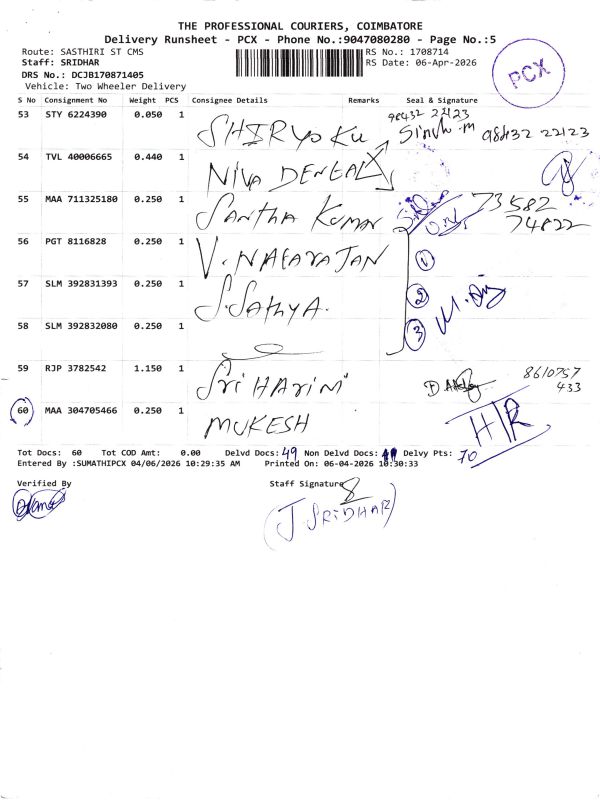 THE PROFESSIONAL COURIERS, COIMBATORE
Delivery Runsheet - PCX - Phone No.:9047080280 - Page No.:5
Route: SASTHIRI ST CMS
RS No.: 1708714
Staff: SRIDHAR
RS Date: 06-Apr-2026
DRS No.: DCJB170871405
Vehicle: Two Wheeler Delivery
PCX
S No Consignment No Weight PCS Consignee Details Remarks Seal & Signature
53 STY 6224390 0.050 1 SHIRYO KU 98432 22123
98432 22123
54 TVL 40006665 0.440 1 NIVA DENTAL
55 MAA 711325180 0.250 1 SANTHA KUMAR 73582
74822
56 PGT 8116828 0.250 1 1
57 SLM 392831393 0.250 1 S.SATHYA. 2
58 SLM 392832080 0.250 1 3
59 RJP 3782542 1.150 1 Sri HARINI 8610757
433
60 MAA 304705466 0.250 1 MUKESH H/R
Tot Docs: 60 Tot COD Amt: 0.00 Delvd Docs: 49 Non Delvd Docs: Delvy Pts: 70
Entered By :SUMATHIPCX 04/06/2026 10:29:35 AM Printed On: 06-04-2026 10:30:33
Verified By Staff Signature
J SRIDHAR